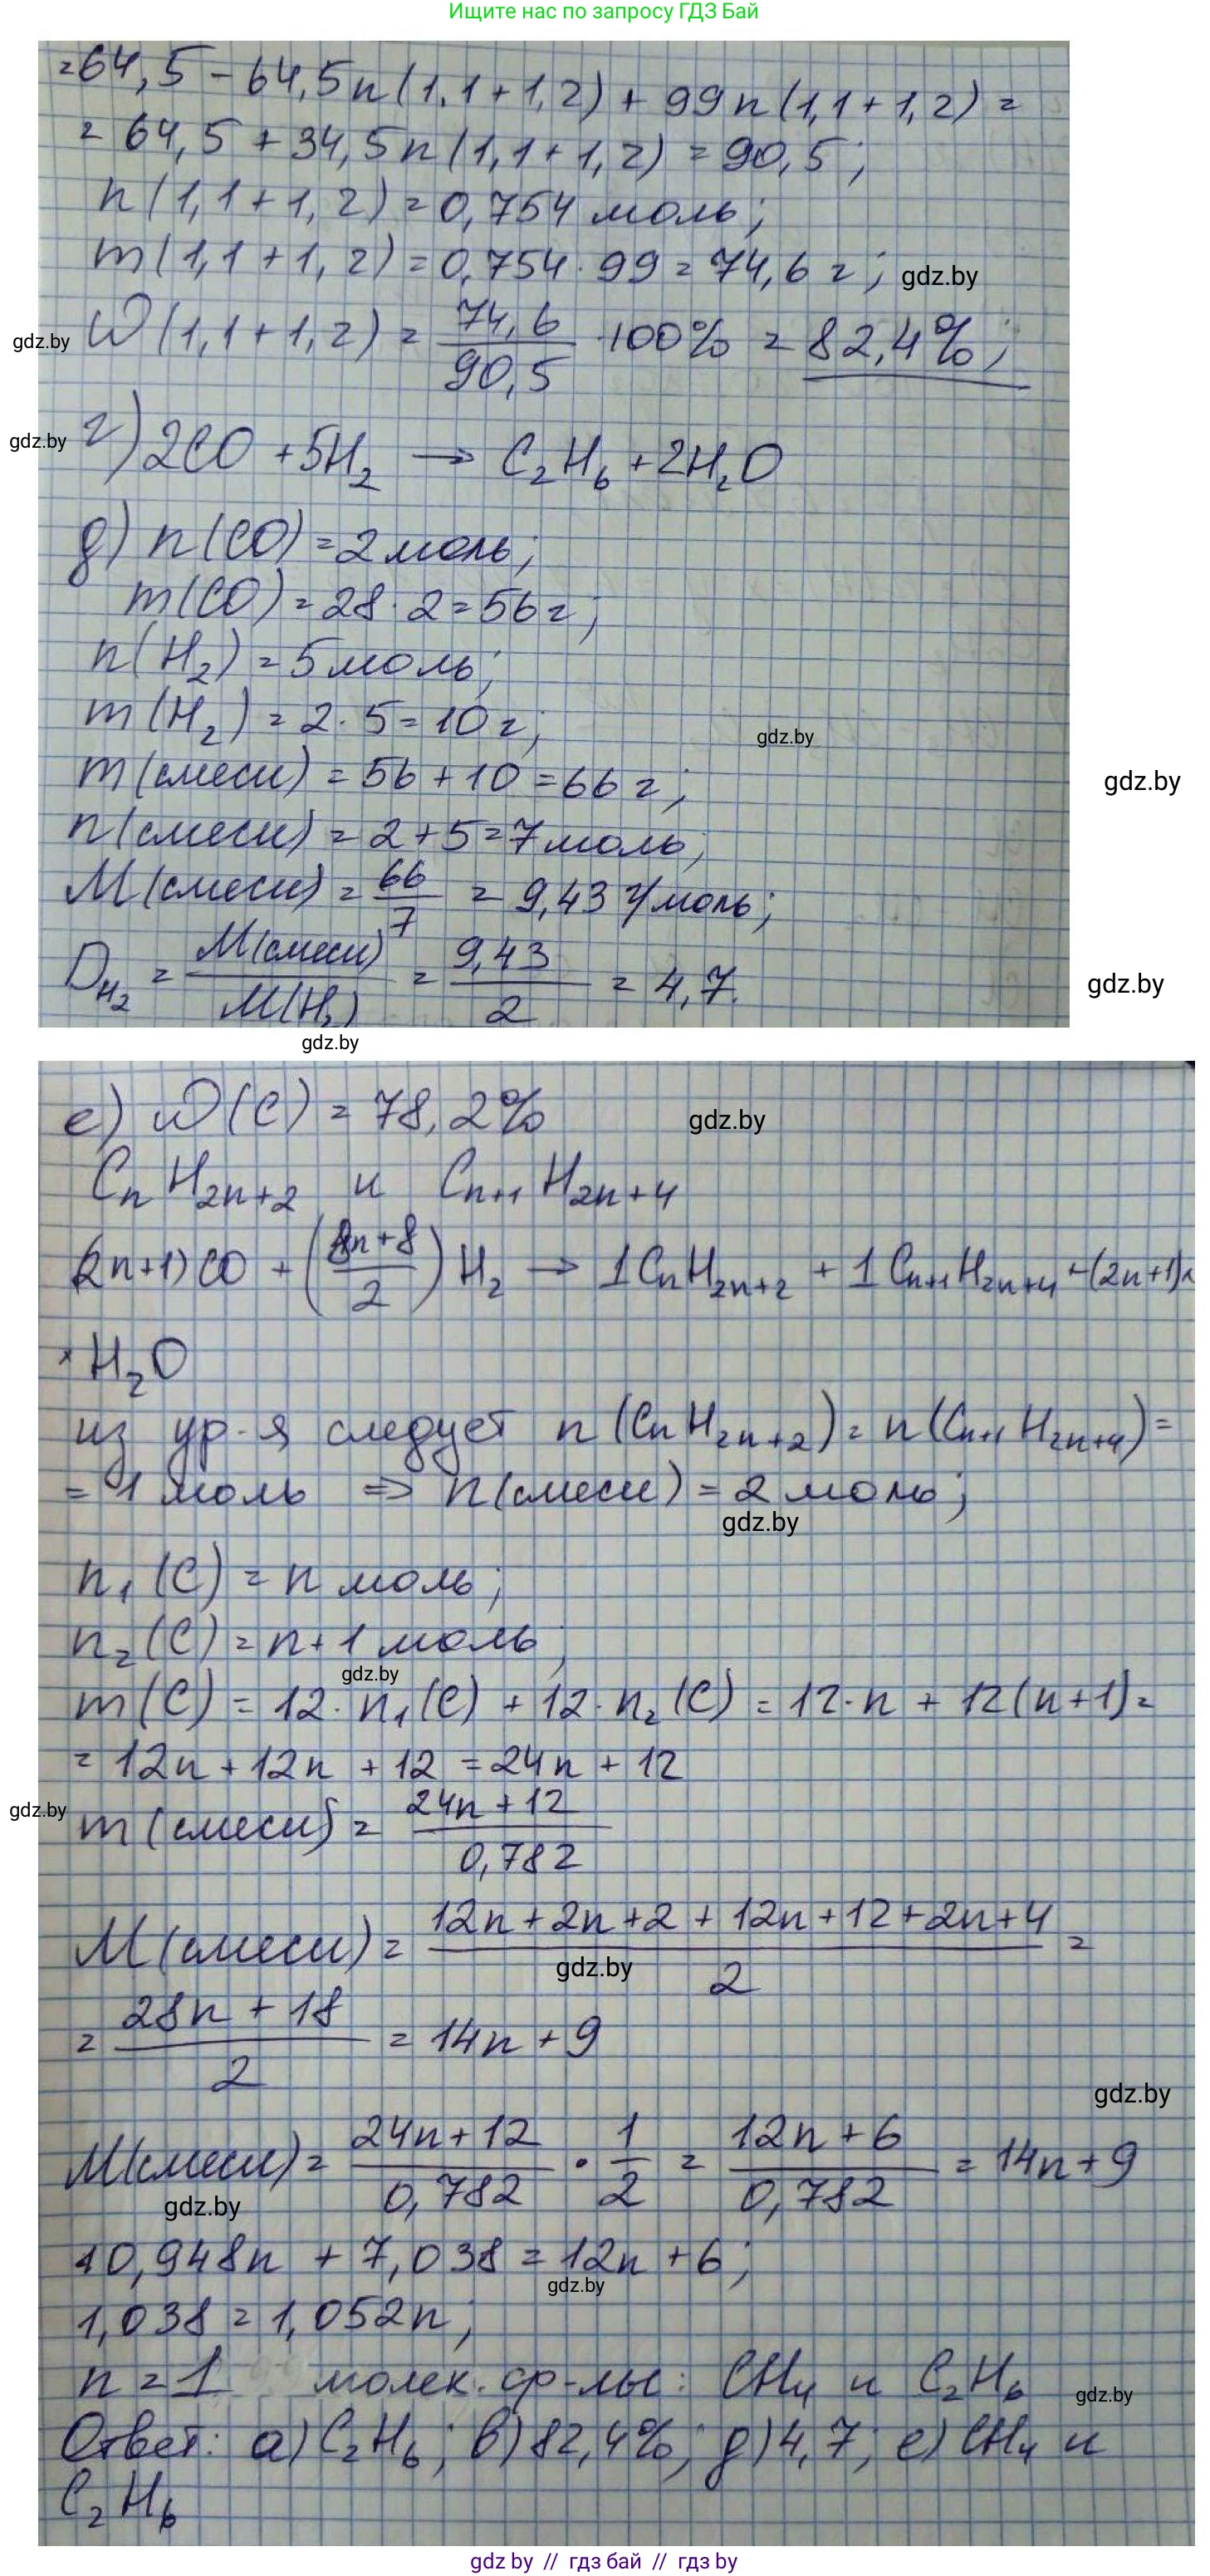 Ищите нас по запросу ГДЗ Бай
=64,5 - 64,5n(1,1+1,2) + 99n(1,1+1,2) =
= 64,5 + 34,5n(1,1+1,2) = 90,5;
n(1,1+1,2) = 0,754 моль;
m(1,1+1,2) = 0,754·99 = 74,6 г;
gdz.by
W(1,1+1,2) = 74,6/90,5 · 100% = 82,4%;
gdz.by
г) 2CO + 5H₂ → C₂H₆ + 2H₂O
gdz.by
д) n(CO) = 2 моль;
m(CO) = 28·2 = 56 г;
n(H₂) = 5 моль;
m(H₂) = 2·5 = 10 г;
gdz.by
m(смеси) = 56 + 10 = 66 г;
gdz.by
n(смеси) = 2 + 5 = 7 моль;
M(смеси) = 66/7 = 9,43 г/моль;
D_H₂ = M(смеси)/M(H₂) = 9,43/2 = 4,7.
gdz.by
gdz.by
е) W(C) = 78,2%
gdz.by
CₙH₂ₙ₊₂ и Cₙ₊₁H₂ₙ₊₄
(2n+1)CO + ((8n+8)/2)H₂ → 1CₙH₂ₙ₊₂ + 1Cₙ₊₁H₂ₙ₊₄ + (2n+1)×
× H₂O
из ур-я следует n(CₙH₂ₙ₊₂) = n(Cₙ₊₁H₂ₙ₊₄) =
= 1 моль ⇒ n(смеси) = 2 моль;
gdz.by
n₁(C) = n моль;
n₂(C) = n+1 моль;
gdz.by
m(C) = 12·n₁(C) + 12·n₂(C) = 12·n + 12(n+1) =
= 12n + 12n + 12 = 24n + 12
gdz.by
m(смеси) = (24n+12)/0,782
M(смеси) = (12n+2n+2+12n+12+2n+4)/2 =
gdz.by
= (28n+18)/2 = 14n + 9
gdz.by
M(смеси) = (24n+12)/0,782 · 1/2 = (12n+6)/0,782 = 14n+9
gdz.by
10,948n + 7,038 = 12n + 6;
gdz.by
1,038 = 1,052n;
n = 1 молек. ф-лы: CH₄ и C₂H₆
gdz.by
Ответ: а) C₂H₆; в) 82,4%; д) 4,7; е) CH₄ и
C₂H₆
gdz by // гдз бай // гдз by